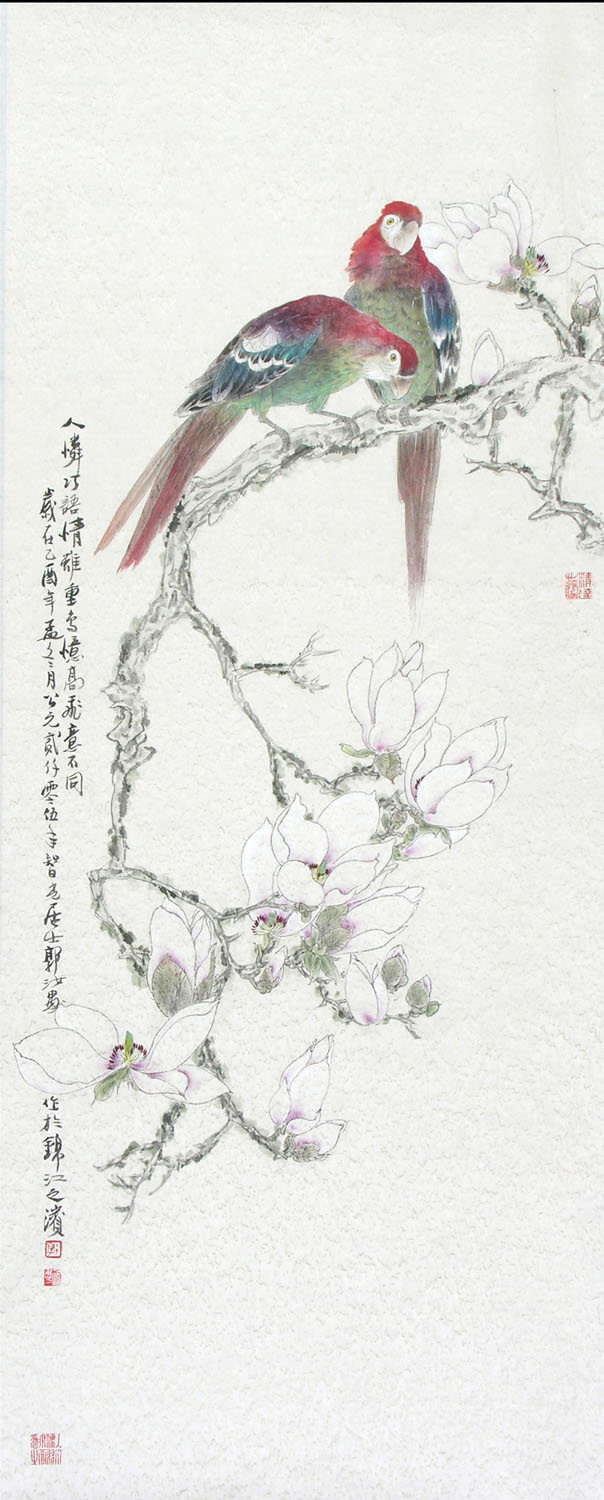 人憐巧語情雖重鳥憶高飛意不同
歲在乙酉年孟冬月公元贰仟零伍年智光居士郭汝愚
作於錦江之濱